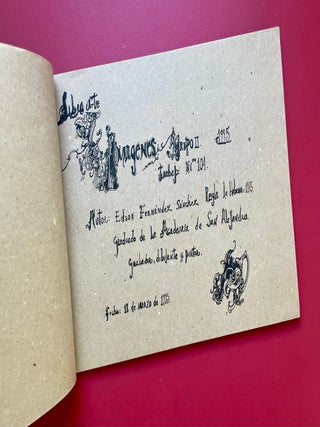 Libro arte
Imagenes Grupo II 1995
trabajo Nro 104
Autor: Edson Fernández Sánchez Regla la Habana 1975
Graduado de la Academia de San Alejandro
grabador, dibujante y pintor.
Fecha: 12 de marzo de 1995.